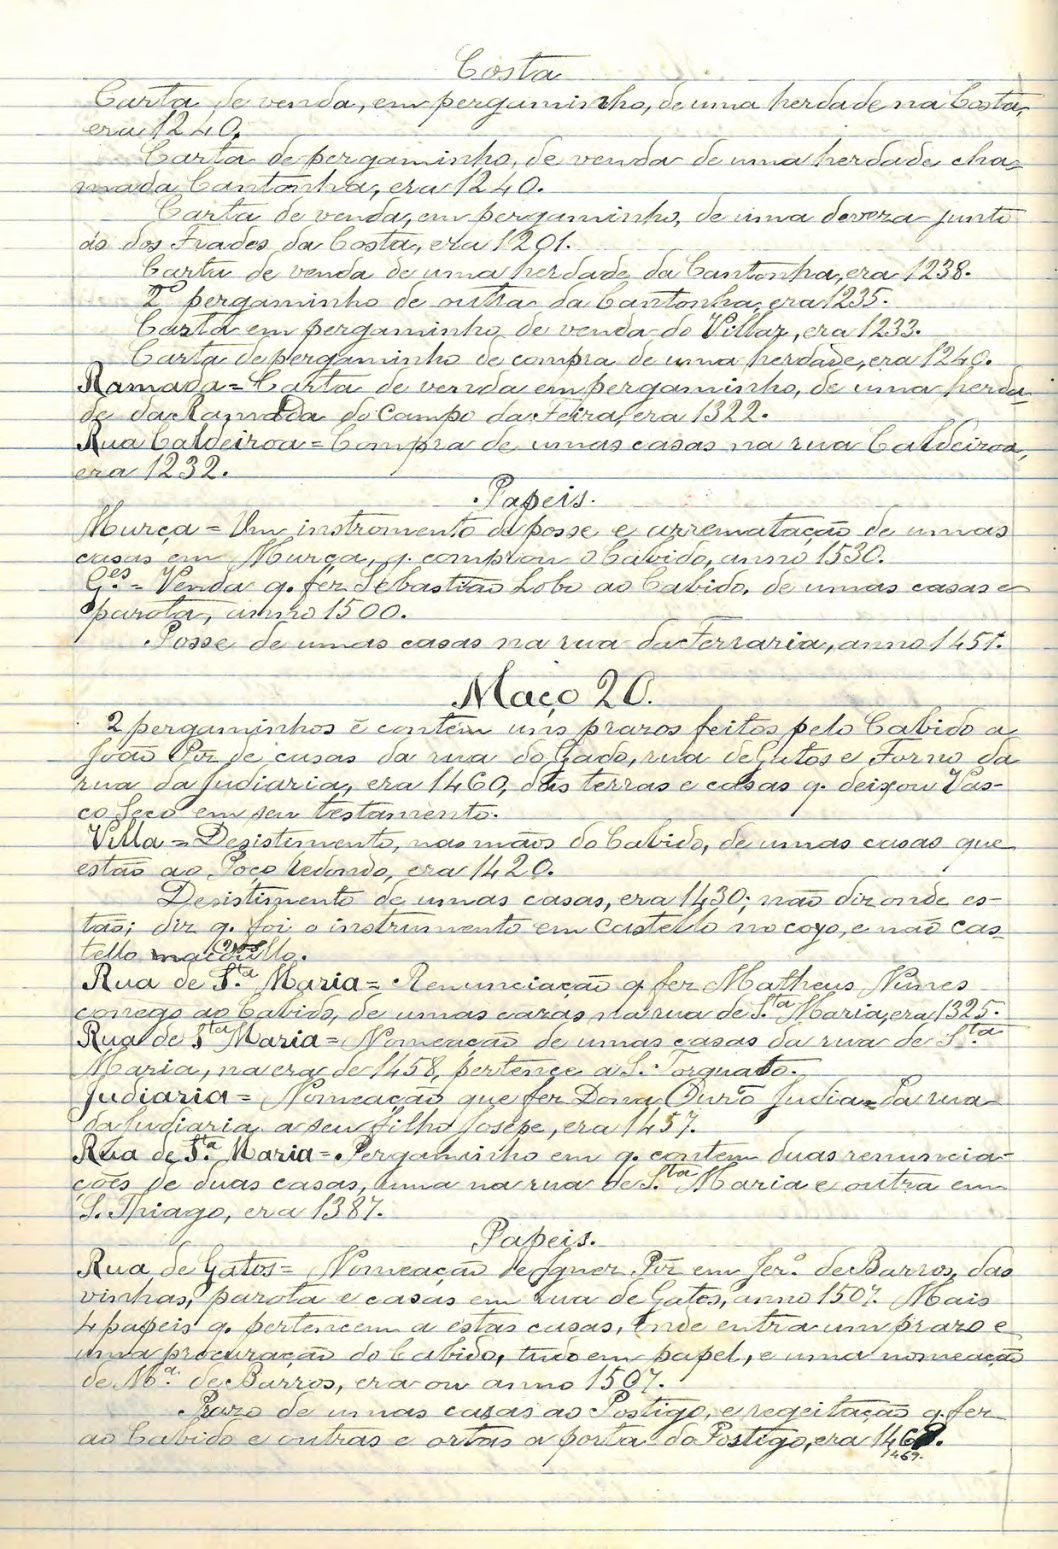 Costa
Carta de venda, em pergaminho, de uma herdade na Costa,
era 1240.
Carta de pergaminho, de venda de uma herdade cha-
mada Cantonha, era 1240.
Carta de venda, em pergaminho, de uma deveza junto
ás dos Frades da Costa, era 1201.
Carta de venda de uma herdade da Cantonha, era 1238.
2º pergaminho de outra da Cantonha, era 1235.
Carta em pergaminho, de venda do Villar, era 1233.
Carta de pergaminho de compra de uma herdade, era 1240.
Ramada = Carta de venda em pergaminho, de uma herda-
de da Ramada do Campo da Feira, era 1322.
Rua Caldeiroa = Compra de umas casas na rua Caldeiroa,
era 1232.
Papeis.
Murça = Um instromento de posse e arrematação de umas
casas em Murça, q. comprou o Cabido, anno 1530.
G.es = Venda q. fez Sebastião Lobo ao Cabido, de umas casas e
parota, anno 1500.
Posse de umas casas na rua da Ferraria, anno 1451.
Maço 20.
2 pergaminhos ē contēm uns prazos feitos pelo Cabido a
João Pīz de casas da rua do Gado, rua de Gatos e Forno da
rua da Judiaria, era 1460, das terras e casas q. deixou Vas-
co Seco em seu testamento.
Villa = Desistimento, nas mãos do Cabido, de umas casas que
estão ao Poço redondo, era 1420.
Desistimento de umas casas, era 1430; não diz onde es-
tão; diz q. foi o instrumento em Castello no coyo, e não cas-
tello
Rua de S.ta Maria = Renunciação q. fez Matheus Nunes
conego ao Cabido, de umas cazas na rua de S.ta Maria, era 1325.
Rua de S.ta Maria = Nomeação de umas casas da rua de S.ta
Maria, na era de 1458, pertence a S. Torquato.
Judiaria = Nomeação que fez Dona Ouro Judia = Da rua
da Judiaria a seu filho Josepe, era 1457.
Rua de S.ta Maria = Pergaminho em q. contem duas renuncia-
ções de duas casas, uma na rua de S.ta Maria e outra em
S. Thiago, era 1387.
Papeis.
Rua de Gatos = Nomeação de Ignez Pīz em Jer.º de Barros, das
vinhas, parota e casas em rua de Gatos, anno 1507. Mais
4 papeis q. pertencem a estas casas, onde entra um prazo e
uma procuração do Cabido, tudo em papel, e uma nomeação
de M.ª de Barros, era ou anno 1507.
Prazo de umas casas ao Postigo, e regeitação q. fez
ao Cabido e outras e ortas a porta do Postigo, era
1469.